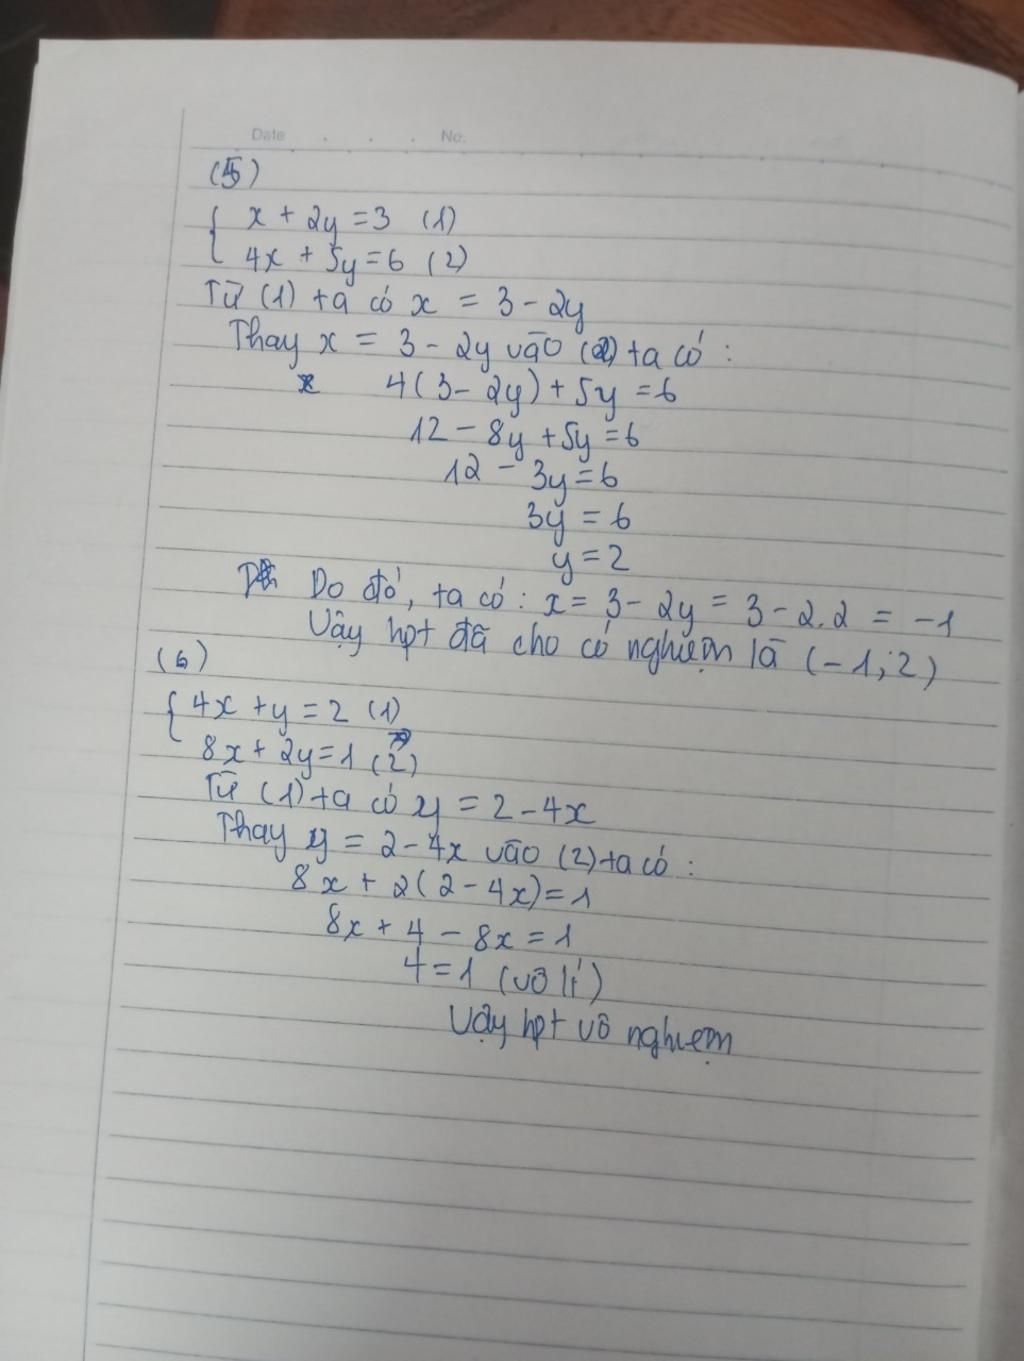 Date . . . No.
(5)
{ x + 2y = 3 (1)
4x + 5y = 6 (2)
Từ (1) ta có x = 3 - 2y
Thay x = 3 - 2y vào (2) ta có :
4(3 - 2y) + 5y = 6
12 - 8y + 5y = 6
12 - 3y = 6
3y = 6
y = 2
Do đó, ta có : x = 3 - 2y = 3 - 2.2 = -1
Vậy hpt đã cho có nghiệm là (-1; 2)
(6)
{ 4x + y = 2 (1)
8x + 2y = 1 (2)
Từ (1) ta có y = 2 - 4x
Thay y = 2 - 4x vào (2) ta có :
8x + 2(2 - 4x) = 1
8x + 4 - 8x = 1
4 = 1 (vô lí)
Vậy hpt vô nghiệm